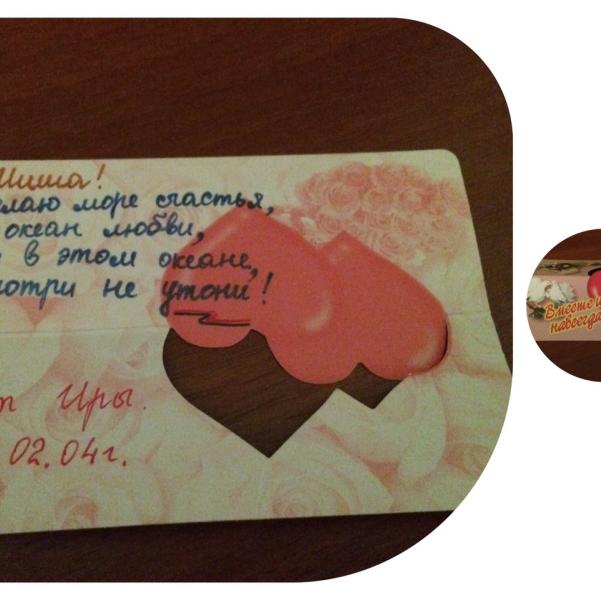 Миша!
елаю море счастья,
океан любви,
в этом океане,
мотри не утони!
Иры.
02.04г.
Вместе и
навсегда